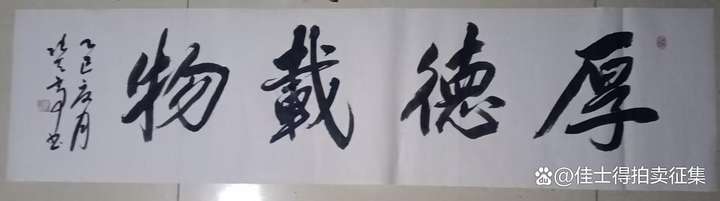 厚德載物
乙巳夏月
@佳士得拍卖征集